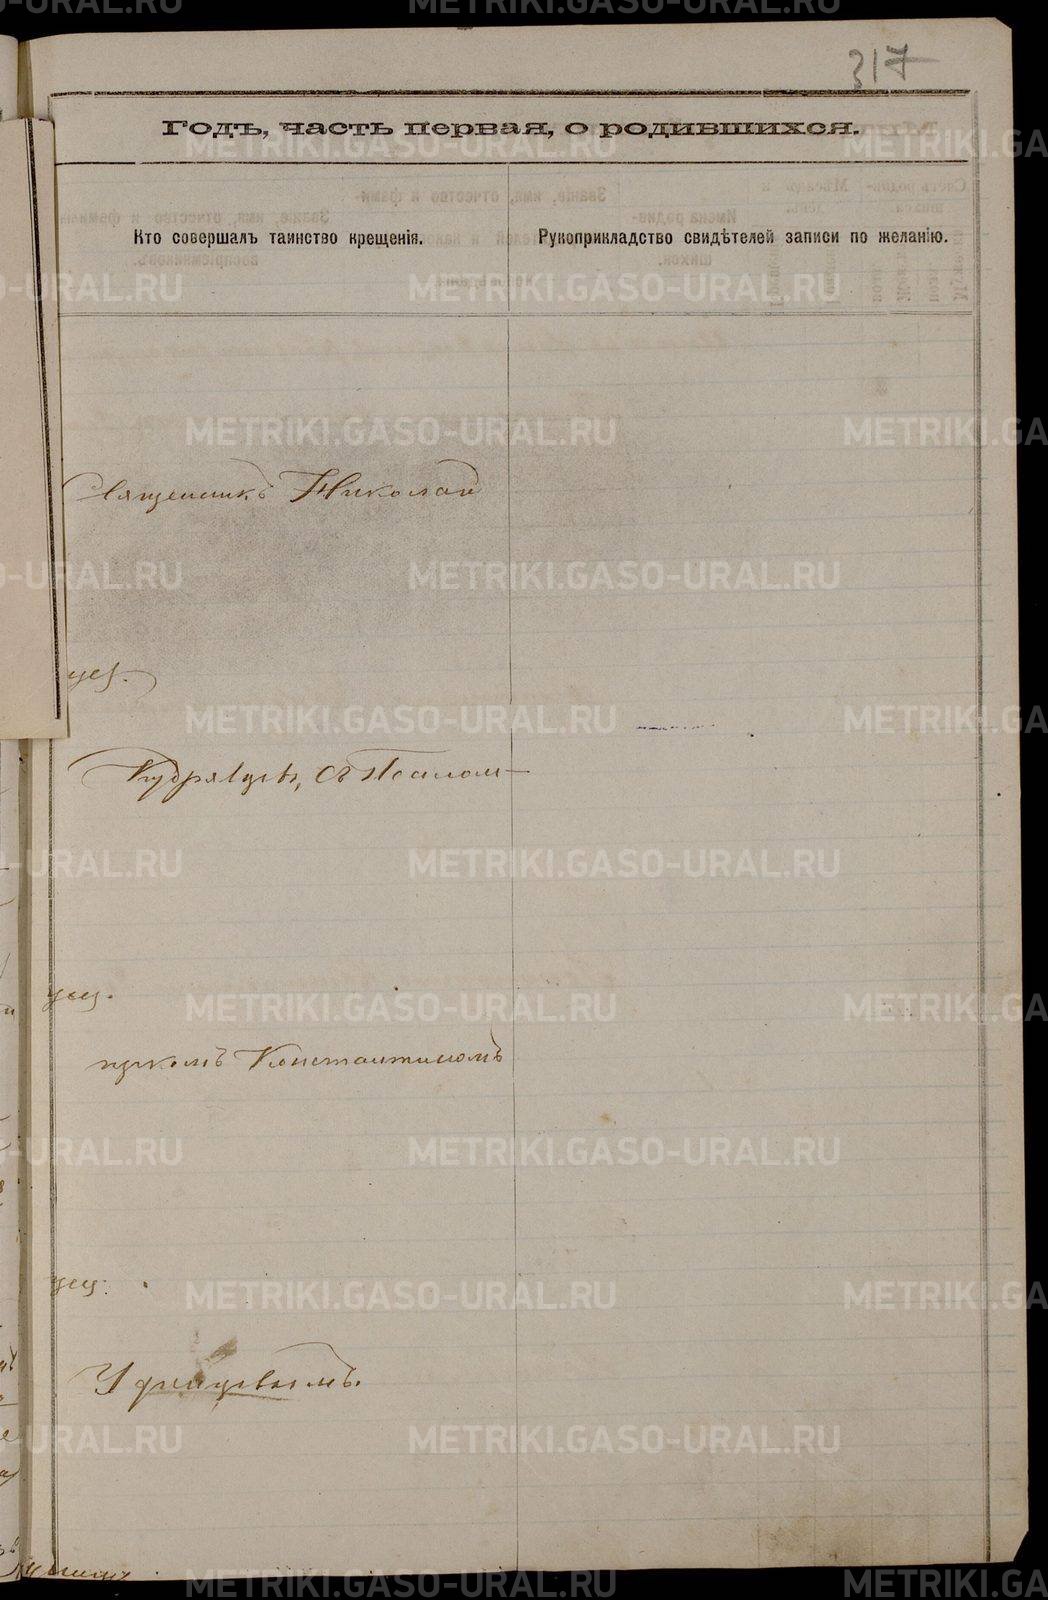 317
Годъ, часть первая, о родившихся.
Кто совершалъ таинство крещенія.
Рукоприкладство свидѣтелей записи по желанію.
Священникъ Николай
уез.
Кудрявцевъ, съ Псалом-
уез.
щикомъ Константиномъ
уез.
METRIKI.GASO-URAL.RU